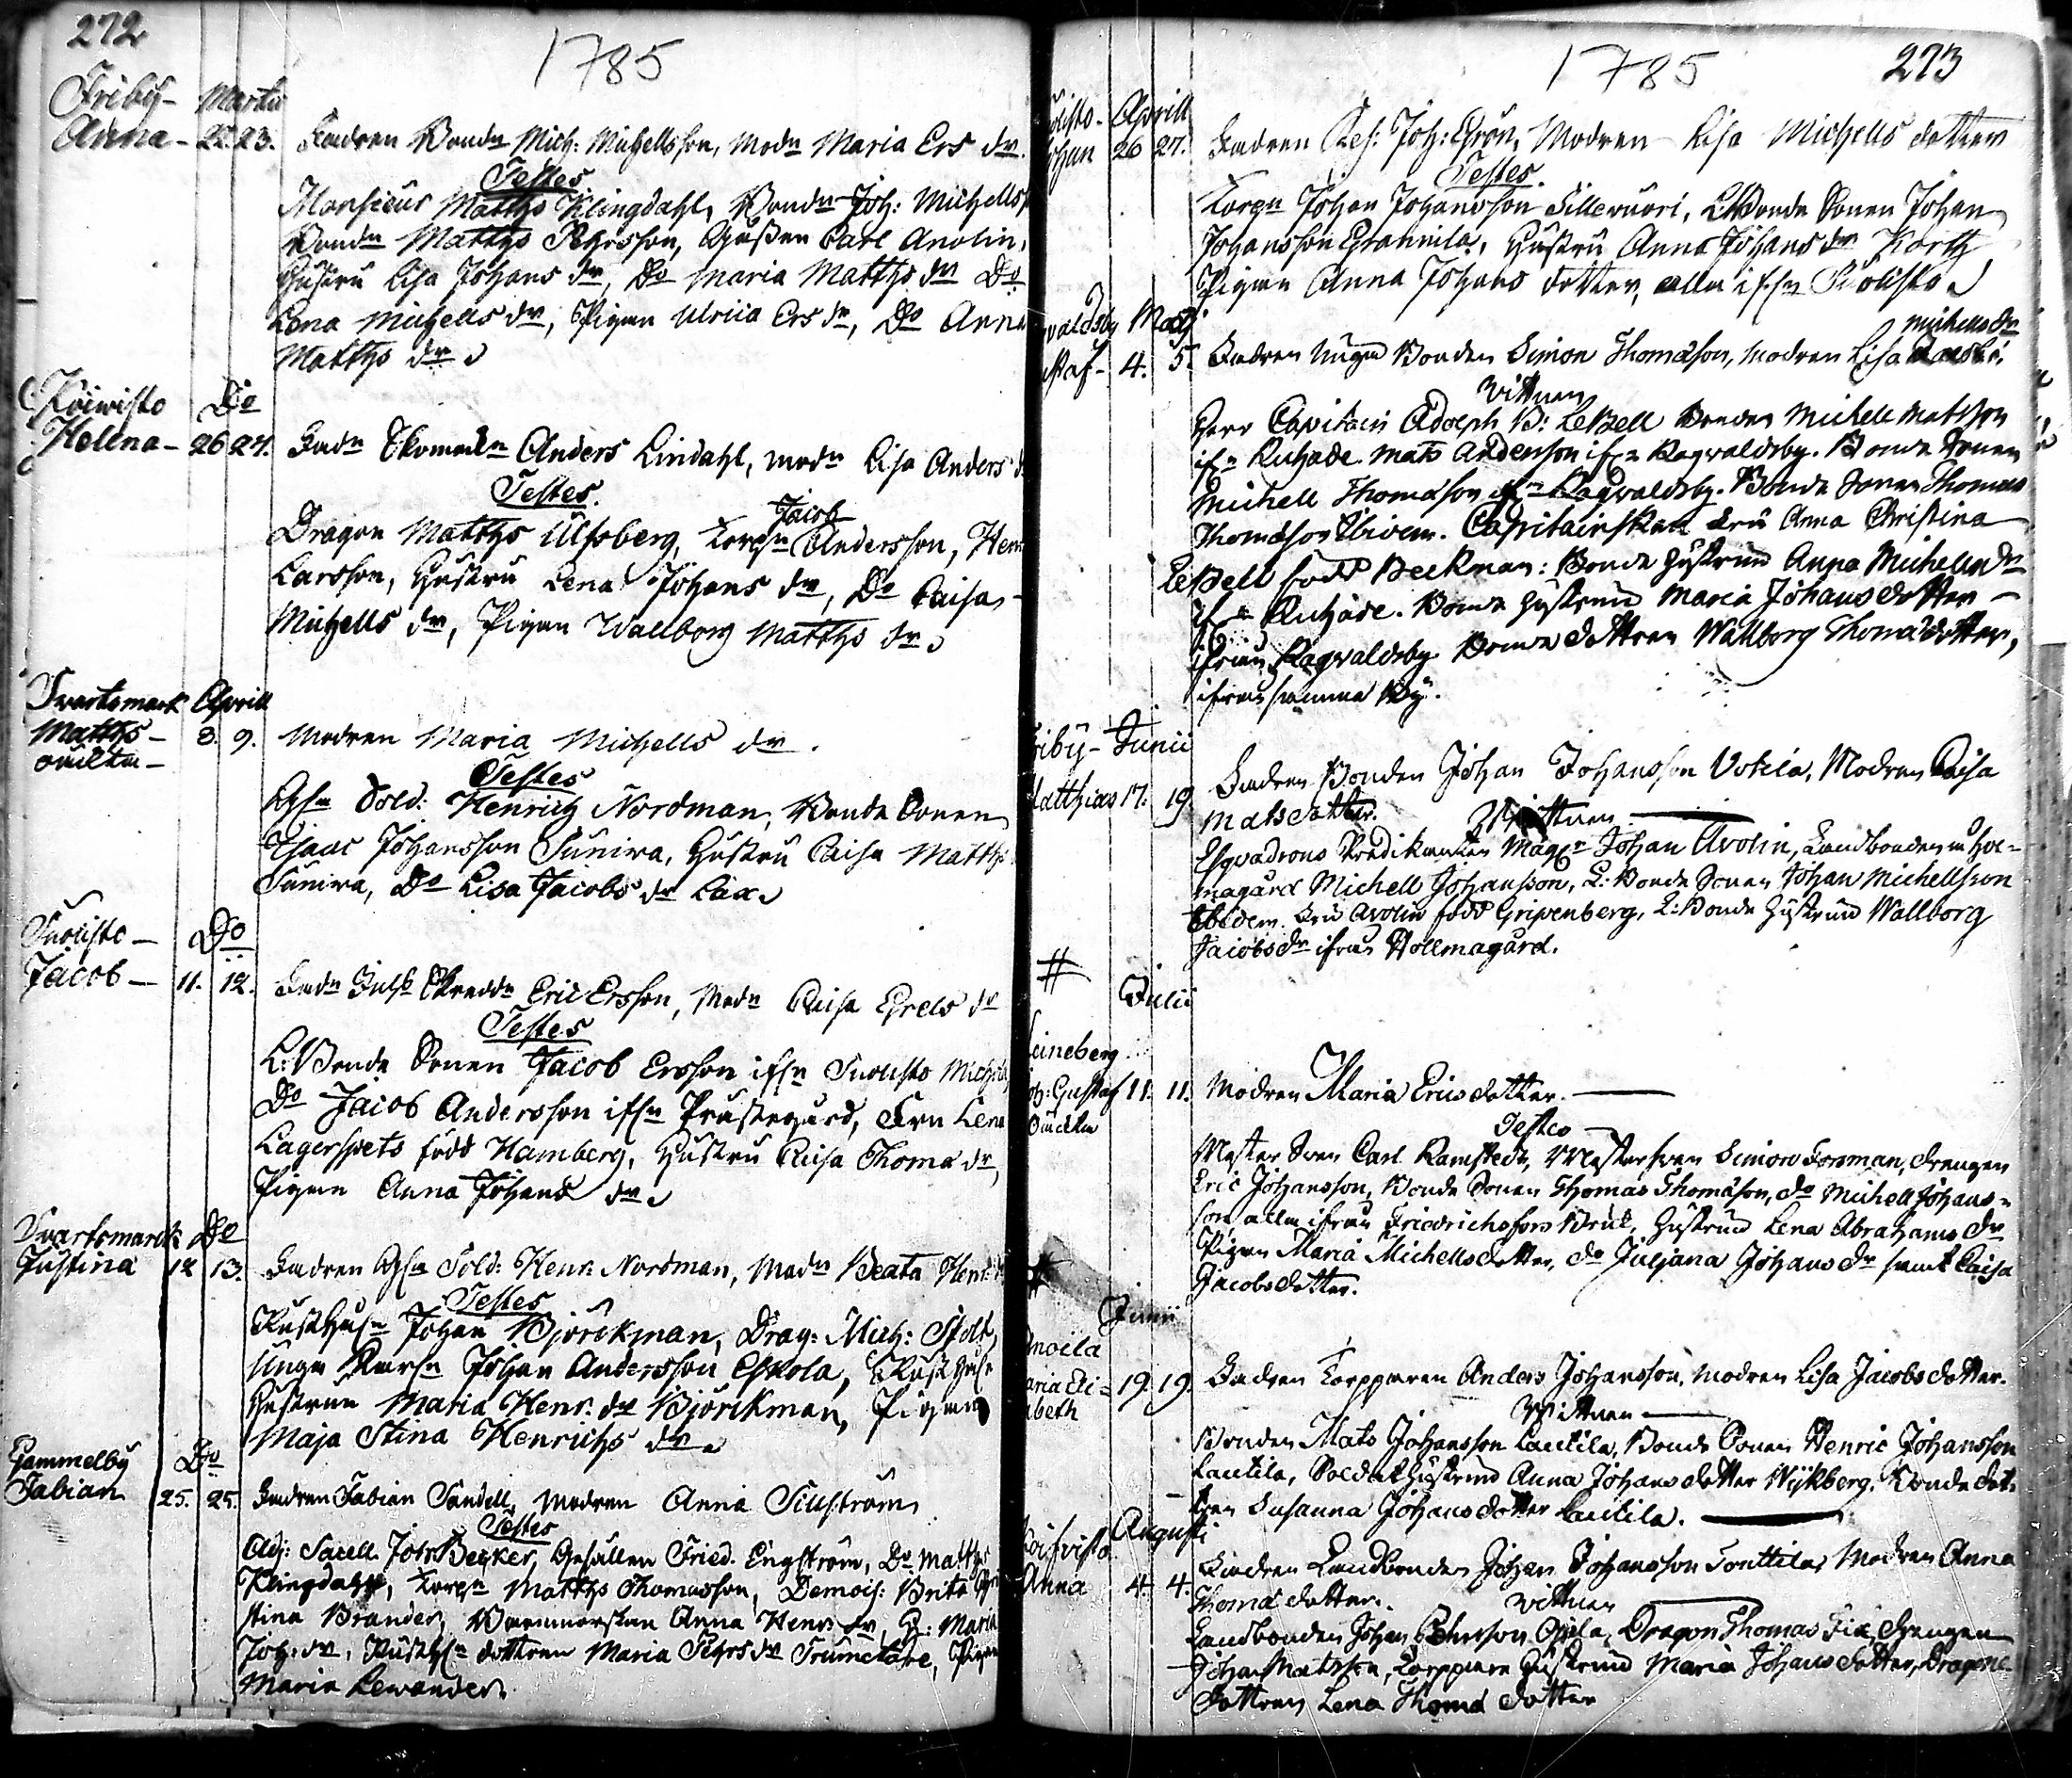 272
1785
Friby - Martii
Anna - 22. 23. Fadren Bondn Mich: Michellsson, Modn Maria Ers dr.
Testes
Monsieur Matths Klingdahl, Bondn Joh: Michells
Bondn Matths Pehrsson, Carl Avolin,
Hustru Lisa Johans dr, Do Maria Matths dr Do
Lena Michells dr, Pigan Ulrica Ers dr, Do Anna
Matths dr
Koiwisto Do
Helena - 26 27. Fadn Skomakn Anders Lindahl, modn Lisa Anders
Testes
Jacob
Dragon Matths Ulfsberg, Torpn Andersson, Henr
Larsson, Hustru Lena Johans dr, Do Caisa
Michells dr, Pigan Wallborg Matths dr
Svartsmark Aprill
Matths - 8. 9. Modren Maria Michells dr.
oäkta -
Testes
Sold: Henrich Nordman, Bonde Sonen
Isaac Johansson Sunira, Hustru Caisa Matths
Sunira, Do Lisa Jacobs dr Lax
Suolisto - Do
Jacob - 11. 12. Fadn Skreddn Eric Ersson, Modn Caisa Grels dr
Testes
L: Bonde Sonen Jacob Ersson ifrn Suolisto Michel
Do Jacob Andersson ifrn Prästegård, Fru Lena
Lagerspets född Hamberg, Hustru Caisa Thoma dr,
Pigan Anna Johans dr
Svartsmark Do
Justina 12 13. Fadren Sold: Henr: Nordman, Modn Beata Henr:
Testes
Rusthn Johan Björckman, Drag: Mich: Stolt,
Unga Johan Andersson Eskola, Rusth
Hustrun Maria Henr. dr Björckman, Pigan
Maja Stina Henrichs dr
Gammelby Do
Fabian 25. 25. Fadren Fabian Sandell, Modren Anna Siuström
Testes
Adj: Sacell. Joh: Becker, Gesällen Fried. Engström, Do Matths
Klingdahl, Torpn Matths Thomasson, Demois: Brita
stina Brander, Anna Henr dr, H: Maria
Joh: dr, Rusth dottren Maria Pehrs dr Trumetare, Pigan
Maria Lewander.
1785
273
olisto - Aprill
ohan 26 27. Fadren Joh: Grön, Modren Lisa Michells dotter
Testes.
Torpn Johan Johansson Sillevuori, L Bonde Sonen Johan
Johansson Grannila, Hustru Anna Johans dr Korth
Pigan Anna Johans dotter, alla ifrn Suolisto
valdsby Maji
Michells dr
staf - 4. 5. Fadren Unga Bonden Simon Thomasson, modren Lisa
Vittnen
Herr Capitain Adolph B: LeBell Bonden Michell Matsson
ifrn Ruhade. Mats Andersson ifrn Ragvaldsby. Bonde Sonen
Michell Thomasson ifrn Ragvaldsby. Bonde Sonen Thomas
Thomasson ibidem. Capitainskan Fru Anna Christina
LeBell född Beckman: Bonde hustrun Anna Michells dr
ifrn Ruhade. Bonde hustrun Maria Johans dotter
ifrån Ragvaldsby. Bonde dottren Wallborg Thoma dotter,
ifrån samma By.
riby - Junii
atthias 17. 19 Fadren Bonden Johan Johansson Uotila, Modren Caisa
Mats dotter. Vittnen
Esqvadrons Predikanten Magr Johan Avolin, Landbonden in Hol=
magård Michell Johansson, L: Bonde Sonen Johan Michellsson
ibidem. Fru Avolin född Gripenberg, L: Bonde hustrun Wallborg
Jacobs dr ifrån Hollmagård.
#
Julii
eineberg
oh: Gustaf 11. 11. Modren Maria Erics dotter.
Oäckta
Testes
Mäster Sven Carl Ramstedt, Mästersven Simon Forsman, drengen
Eric Johansson, Bonde Sonen Thomas Thomasson, do Michell Johans=
son alla ifrån Friedrichsfors Bruk, Hustrun Lena Abrahams dr
Pigan Maria Michells dotter, do Juljana Johans dr samt Caisa
Jacobs dotter.
#
Junii
noila
aria Eli= 19. 19. Fadren Torpparen Anders Johansson, Modren Lisa Jacobs dotter.
abeth
Vittnen
Bonden Mats Johansson Lautila, Bonde Sonen Henric Johansson
Lautila, Soldat hustrun Anna Johans dotter Wijkberg. Bonde dot=
tren Susanna Johans dotter Lautila.
oifvisto Augusti
Anna 4. 4. Fadren Landbonden Johan Johansson Tonttila, Modren Anna
Thomä dotter. Vittnen
Landbonden Johan Ojala, Dragon Thomas Fix, drengen
Johan Matsson, Torppare hustrun Maria Johans dotter, Dragone
dottren Lena Thomä dotter